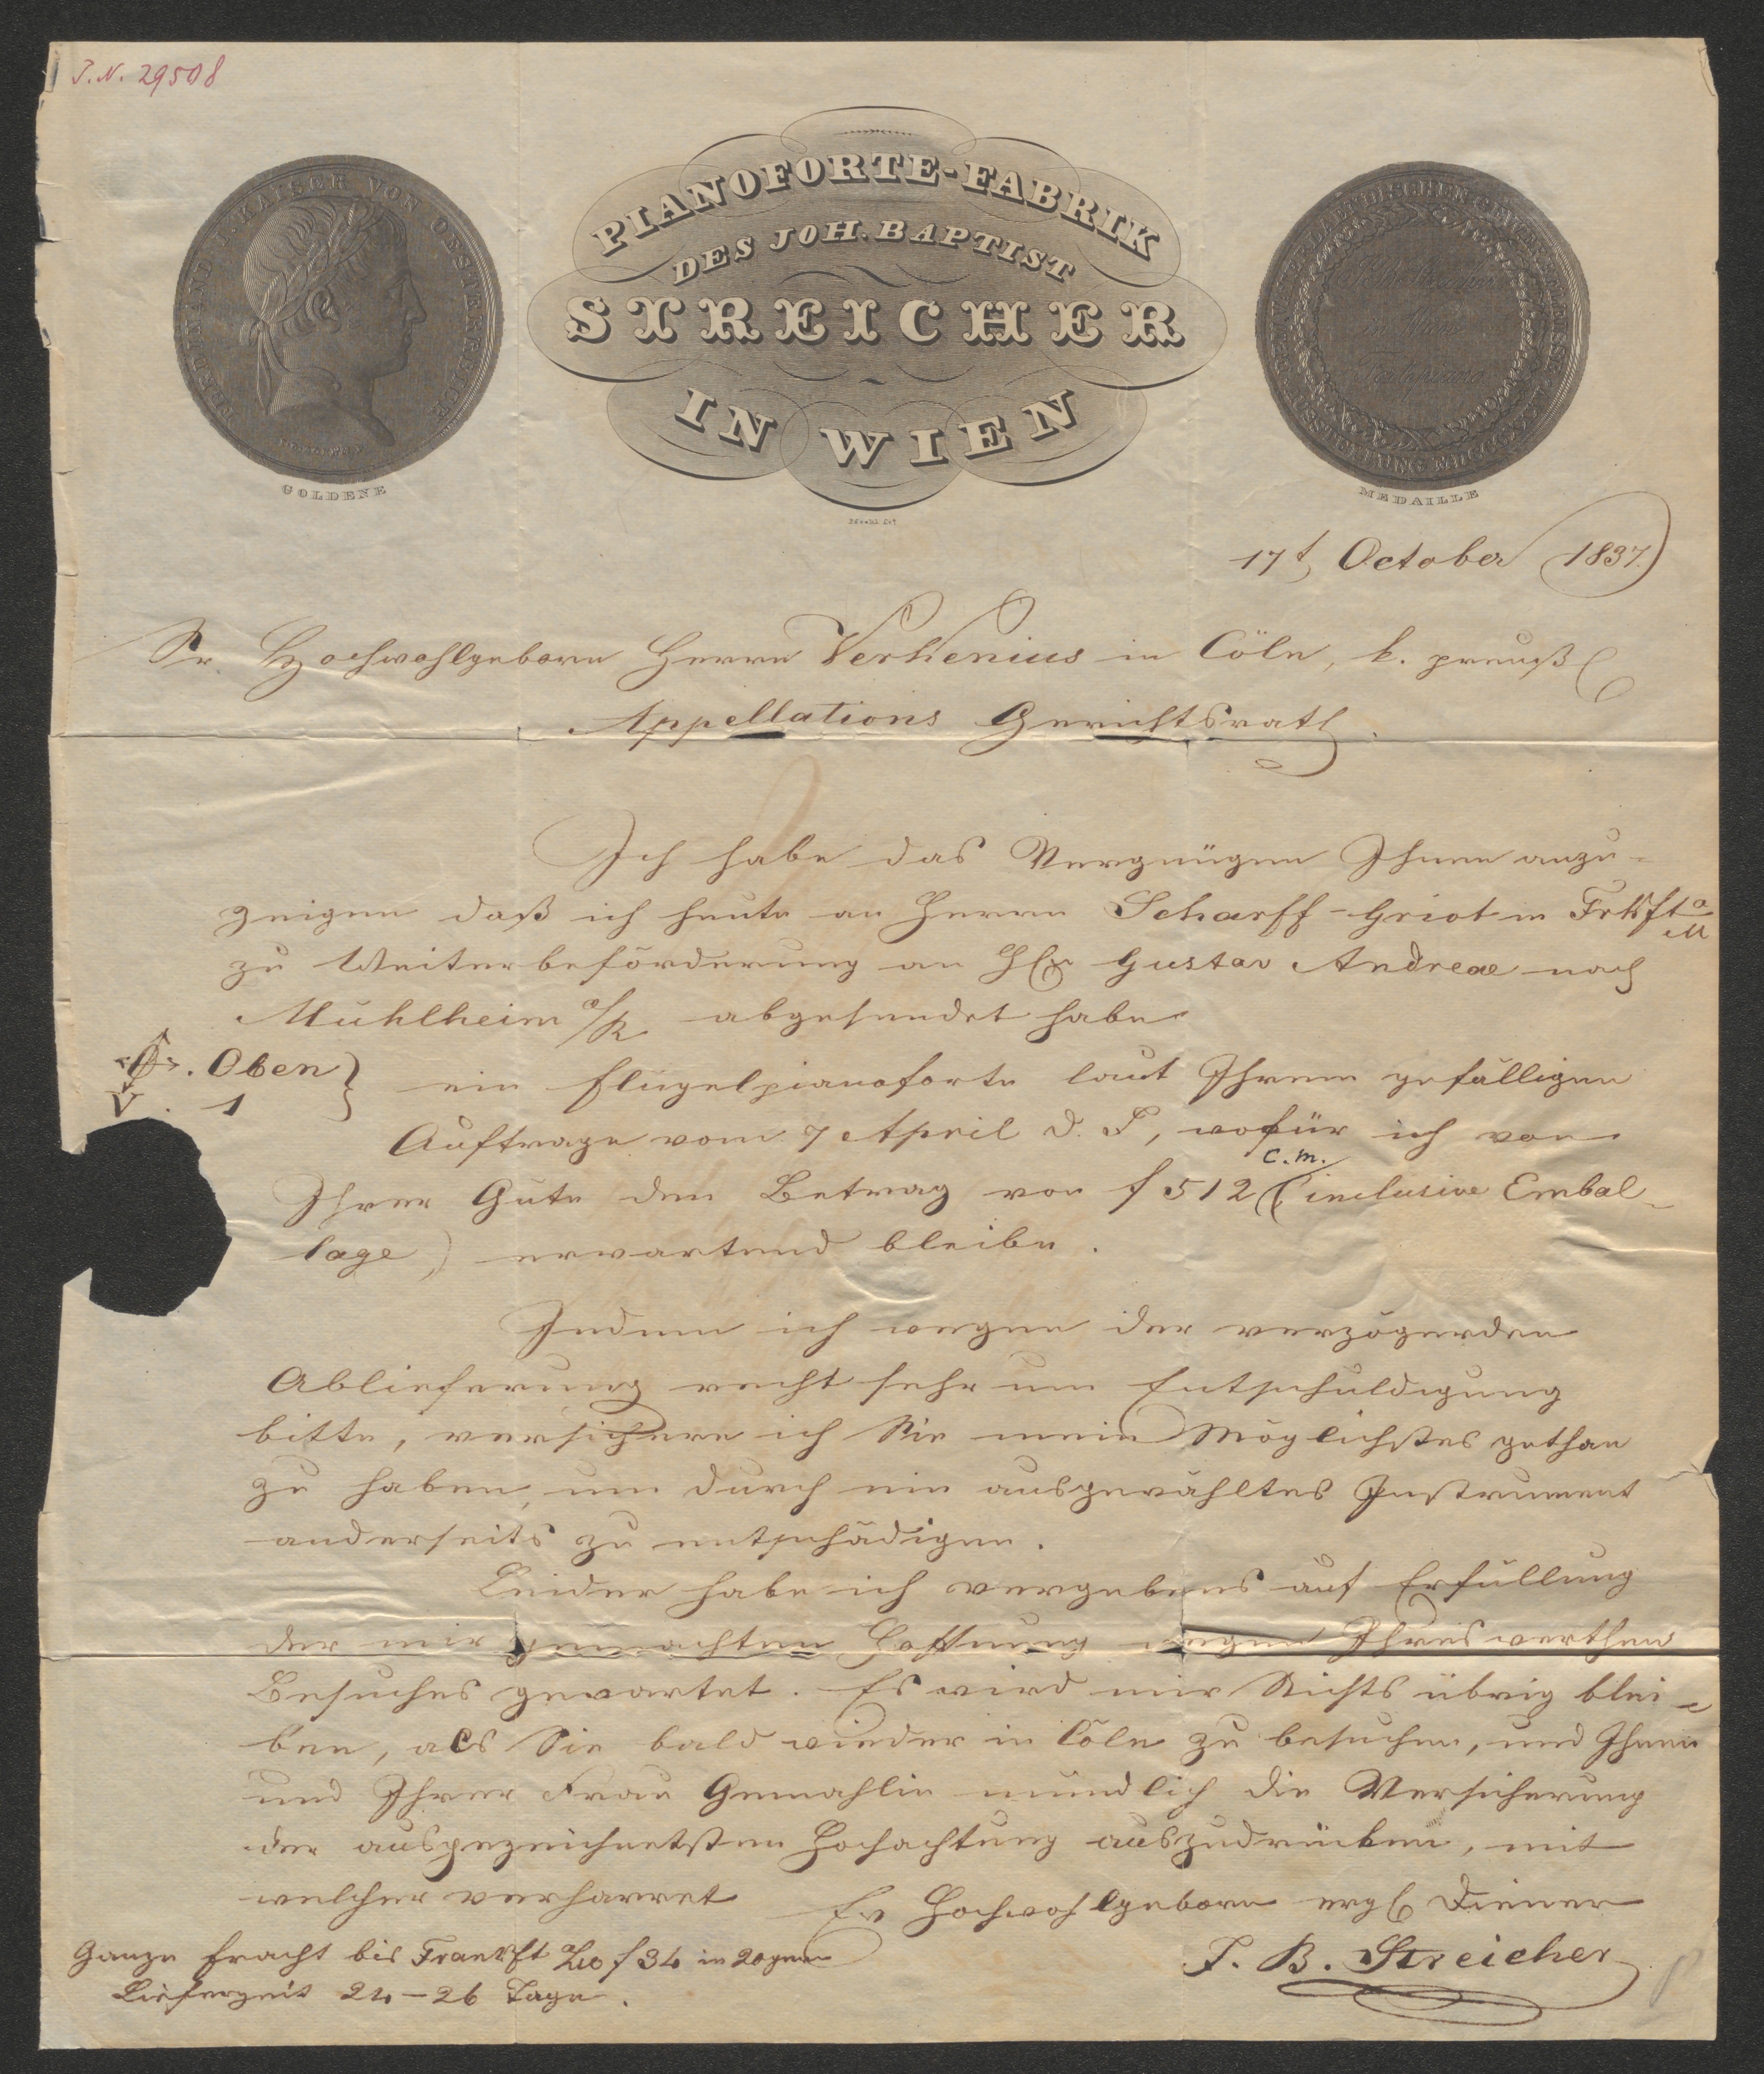 J.N. 29508
FERDINAND I. KAISER VON OESTERREICH
GOLDENE
PIANOFORTE-FABRIK
DES JOH. BAPTIST
STREICHER
IN WIEN
MEDAILLE
17t October 1837.
Sr. Hochwohlgeborn Herrn Verkenius in Cöln, k. preuß
Appellations Gerichtsrath.
Ich habe das Vergnügen Ihnen anzu-
zeigen daß ich heute an Herrn Scharff-Griot in Frkft a/M
zu Weiterbeförderung an H Gustav Andreae nach
Mühlheim a/R abgesendet habe
Oben
V. 1 } ein Flügelpianoforte laut Ihrem gefälligen
Auftrage vom 7 April d. J, wofür ich von
C.M.
Ihrer Güte den Betrag von f 512 (inclusive Embal-
lage) erwartend bleibe.
Indem ich wegen der verzögerden
Ablieferung recht sehr um Entschuldigung
bitte, versichere ich Sie mein Möglichstes gethan
zu haben, um durch ein ausgewähltes Instrument
anderseits zu entschädigen.
Leider habe ich vergebens auf Erfüllung
der mir gemachten Hoffnung wegen Ihres werthen
Besuches gewartet. Es wird mir Nichts übrig blei-
ben, als Sie bald wieder in Cöln zu besuchen, und Ihnen
und Ihrer Frau Gemahlin mündlich die Versicherung
der ausgezeichnetsten Hochachtung auszudrücken, mit
welcher verharret
Ew Hochwohlgeborn erg Diener
J. B. Streicher
Ganze Fracht bis Frankft f 34 in 20gern
Lieferzeit 24-26 Tage.